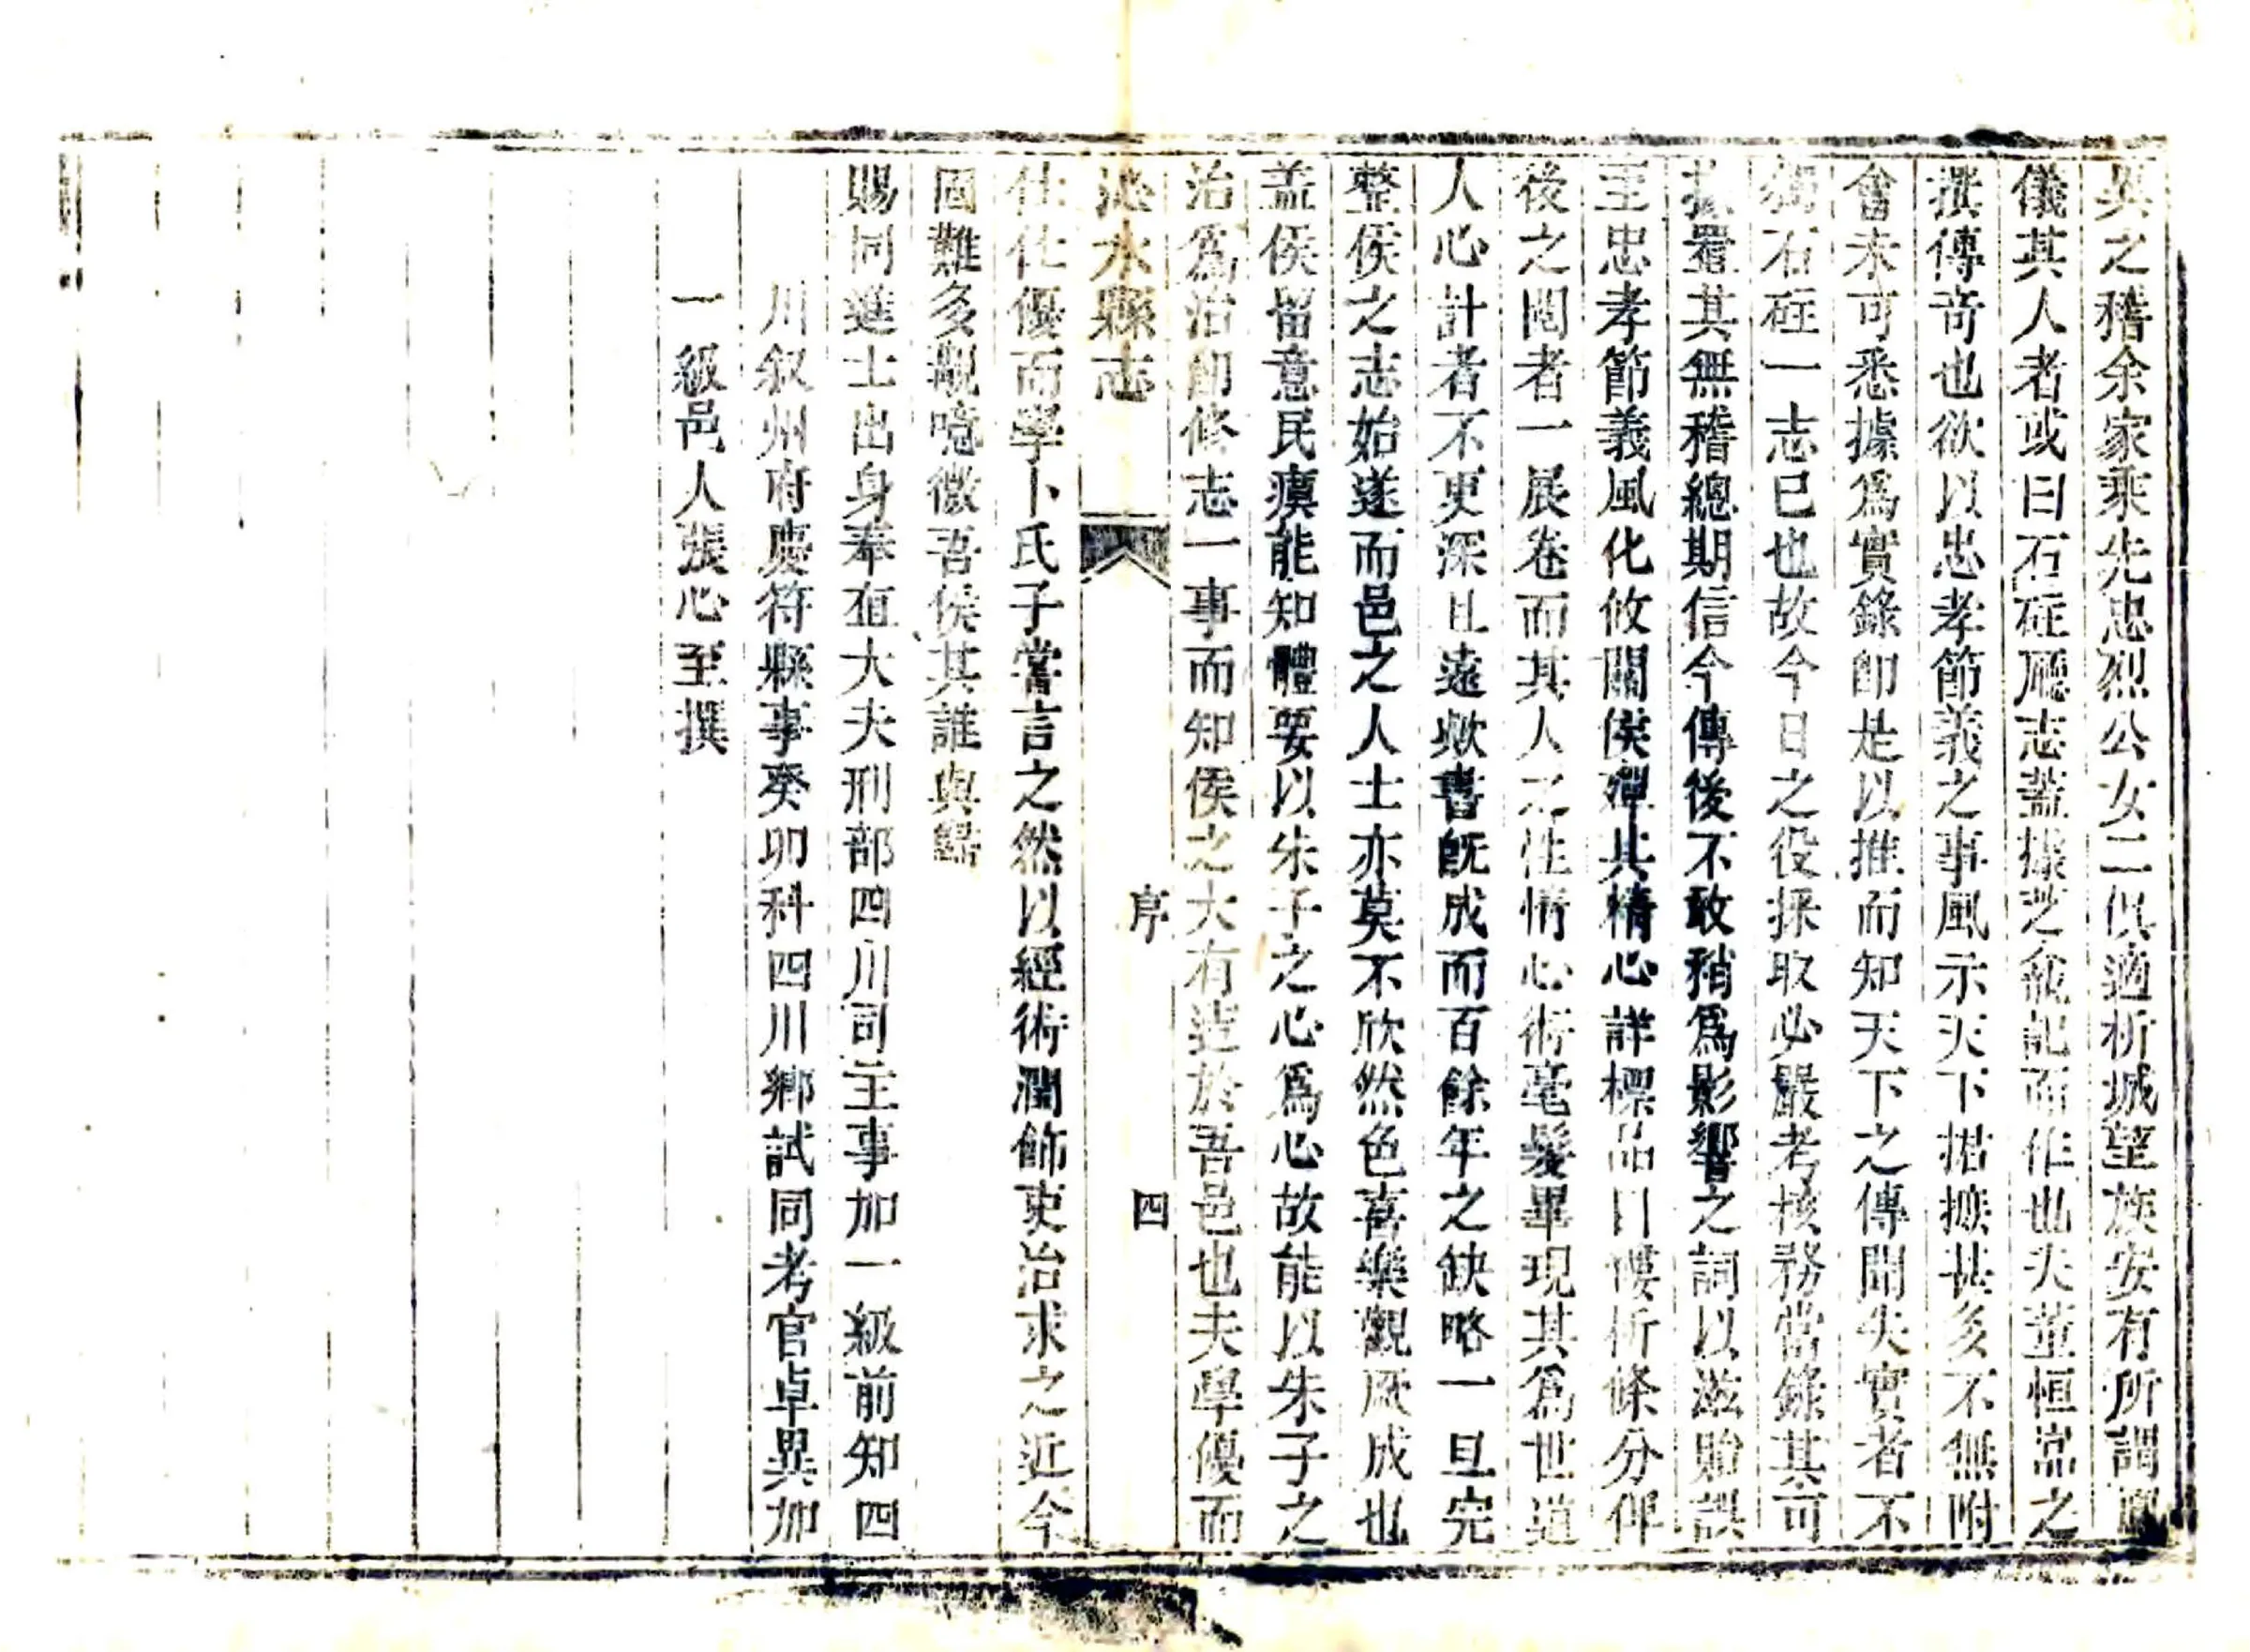 異之稽余家乘先忠烈公女二俱適析城望族安有所謂鳳
儀其人者或曰石砫廳志蓋據芝龕記而作也夫董恒嵓之
撰傳奇也欲以忠孝節義之事風示天下掂摭甚多不無附
會未可悉據為實錄即是以推而知天下之傳聞失實者不
獨石砫一志已也故今日之役採取必嚴考核務當錄其可
據置其無稽總期信今傳後不敢稍為影響之詞以滋貽誤
至忠孝節義風化攸關侯殫其精心詳標品目縷析條分俾
後之閱者一展卷而其人之性情心術毫髮畢現其為世道
人心計者不更深且遠歟書既成而百餘年之缺略一旦完
整侯之志始遂而邑之人士亦莫不欣然色喜樂觀厥成也
蓋侯留意民瘼能知體要以朱子之心為心故能以朱子之
治為治即修志一事而知侯之大有造於吾邑也夫學優而
沁水縣志 序 四
仕仕優而學卜氏子嘗言之然以經術潤飾吏治求之近今
固難多覯噫微吾侯其誰與歸
賜同進士出身奉直大夫刑部四川司主事加一級前知四
川叙州府慶符縣事癸卯科四川鄉試同考官卓異加
一級邑人張心至撰